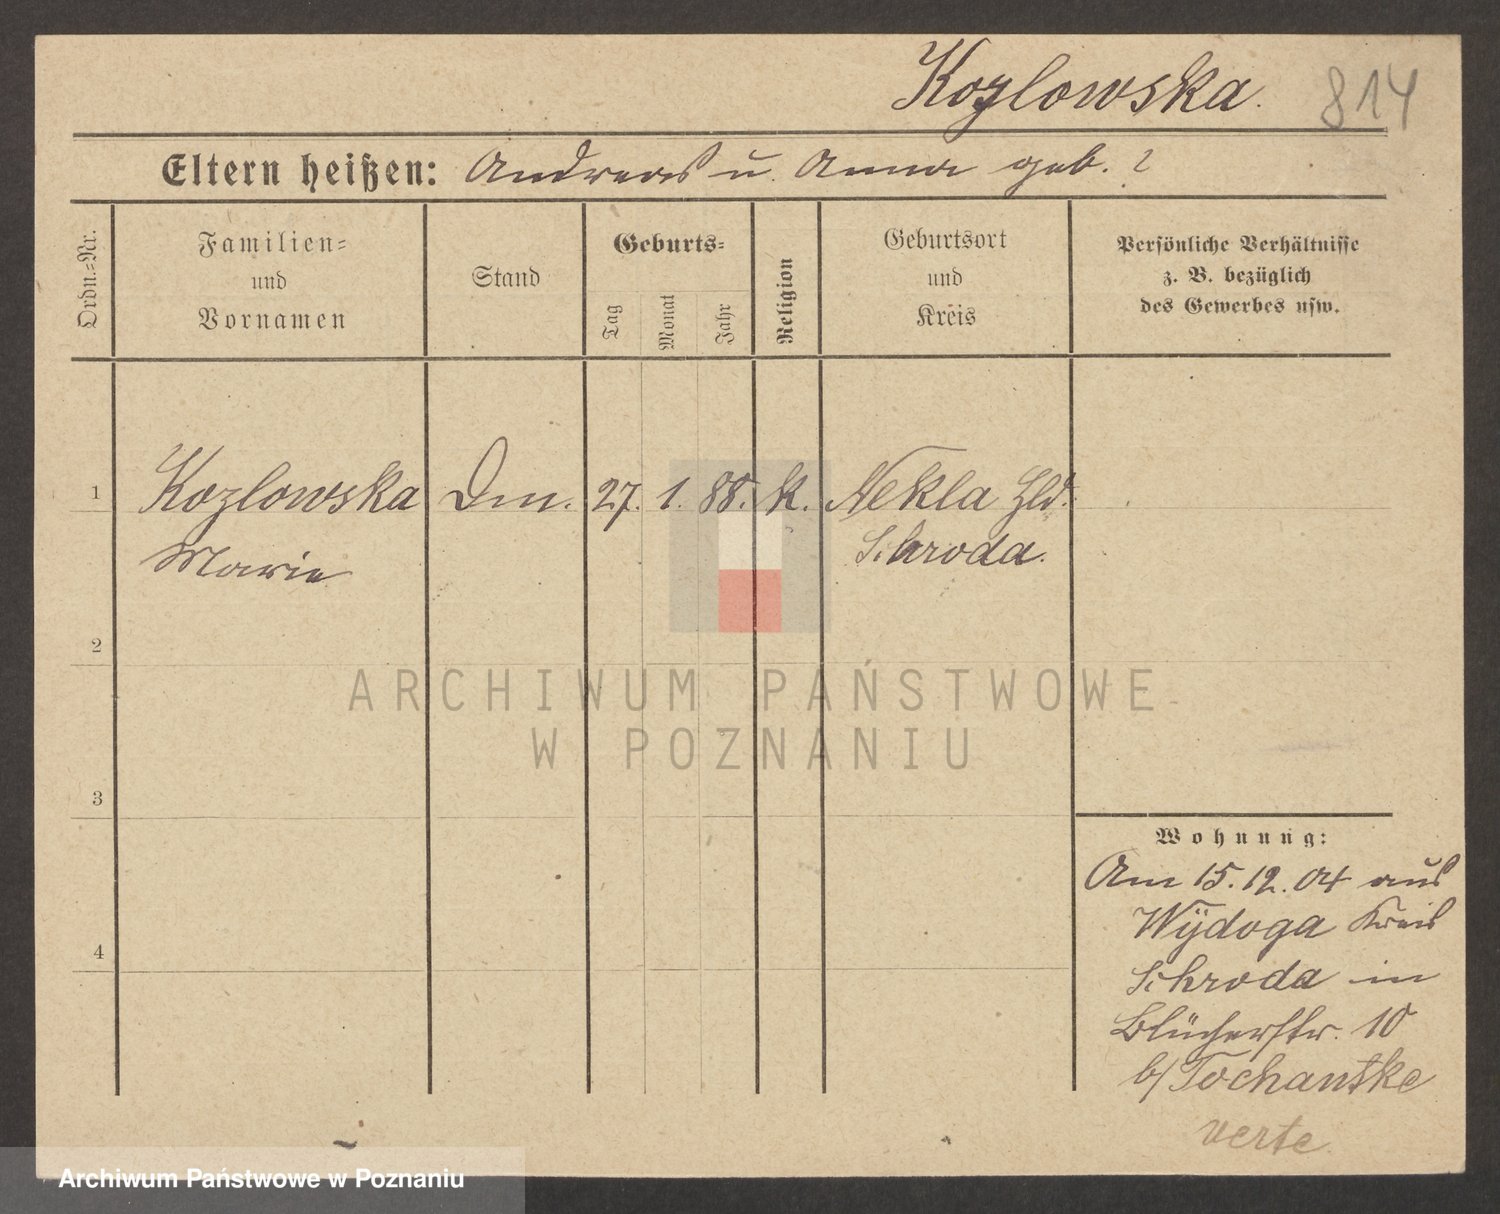 Kozlowska. 814
Eltern heißen: Andreas u. Anna geb. ?
Ordn.=Nr.
Familien=
und
Vornamen
Stand
Geburts=
Tag
Monat
Jahr
Religion
Geburtsort
und
Kreis
Persönliche Verhältnisse
z. B. bezüglich
des Gewerbes usw.
1 Kozlowska Dm. 27. 1. 88. k. Nekla Hld.
Marie Schroda.
2
3
4
Wohnung:
Am 15.12.04 aus
Wÿdoga Kreis
Schroda in
Blücherstr. 10
b/ Tochantke
verte
ARCHIWUM PAŃSTWOWE
W POZNANIU
Archiwum Państwowe w Poznaniu